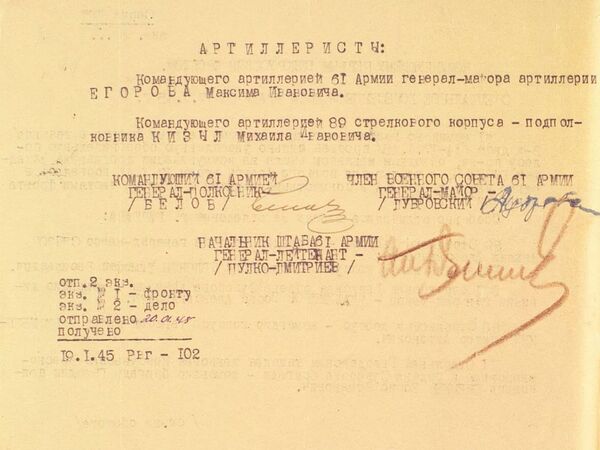 АРТИЛЛЕРИСТЫ:
Командующего артиллерией 61 Армии генерал-майора артиллерии
ЕГОРОВА Максима Ивановича.
Командующего артиллерией 89 стрелкового корпуса - подпол-
ковника КИЗЫЛ Михаила Ивановича.
КОМАНДУЮЩИЙ 61 АРМИЕЙ
ГЕНЕРАЛ-ПОЛКОВНИК-
/ БЕЛОВ /
ЧЛЕН ВОЕННОГО СОВЕТА 61 АРМИИ
ГЕНЕРАЛ-МАЙОР -
/ ДУБРОВСКИЙ /
НАЧАЛЬНИК ШТАБА61 АРМИИ
ГЕНЕРАЛ-ЛЕЙТЕНАНТ -
/ ПУЛКО-ДМИТРИЕВ /
отп.2 экз.
экз. № 1 - фронту
экз. № 2 - дело
отправлено 20.01.45
получено
19.1.45 Рвг - 102